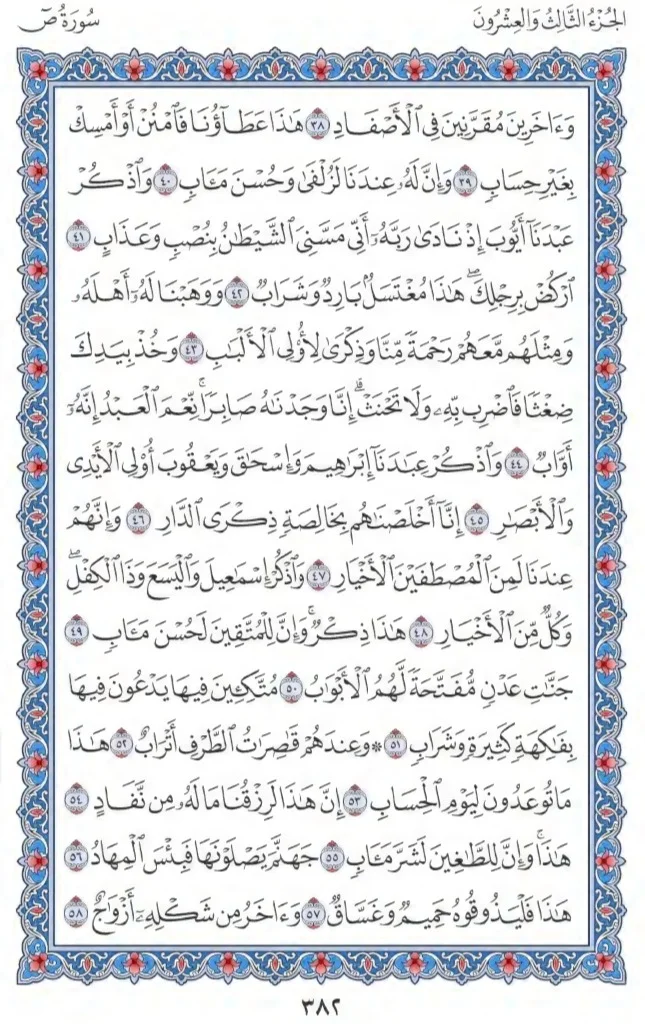 الجُزْءُ الثَّالِثُ وَالعِشْرُونَ
سُورَةُ صٓ
وَءَاخَرِينَ مُقَرَّنِينَ فِى ٱلْأَصْفَادِ ٣٨ هَٰذَا عَطَآؤُنَا فَٱمْنُنْ أَوْ أَمْسِكْ
بِغَيْرِ حِسَابٍ ٣٩ وَإِنَّ لَهُۥ عِندَنَا لَزُلْفَىٰ وَحُسْنَ مَـَٔابٍ ٤٠ وَٱذْكُرْ
عَبْدَنَآ أَيُّوبَ إِذْ نَادَىٰ رَبَّهُۥٓ أَنِّى مَسَّنِىَ ٱلشَّيْطَٰنُ بِنُصْبٍ وَعَذَابٍ ٤١
ٱرْكُضْ بِرِجْلِكَ ۖ هَٰذَا مُغْتَسَلٌۢ بَارِدٌ وَشَرَابٌ ٤٢ وَوَهَبْنَا لَهُۥٓ أَهْلَهُۥ
وَمِثْلَهُم مَّعَهُمْ رَحْمَةً مِّنَّا وَذِكْرَىٰ لِأُو۟لِى ٱلْأَلْبَٰبِ ٤٣ وَخُذْ بِيَدِكَ
ضِغْثًا فَٱضْرِب بِّهِۦ وَلَا تَحْنَثْ ۗ إِنَّا وَجَدْنَٰهُ صَابِرًا ۚ نِّعْمَ ٱلْعَبْدُ ۖ إِنَّهُۥٓ
أَوَّابٌ ٤٤ وَٱذْكُرْ عِبَٰدَنَآ إِبْرَٰهِيمَ وَإِسْحَٰقَ وَيَعْقُوبَ أُو۟لِى ٱلْأَيْدِى
وَٱلْأَبْصَٰرِ ٤٥ إِنَّآ أَخْلَصْنَٰهُم بِخَالِصَةٍ ذِكْرَى ٱلدَّارِ ٤٦ وَإِنَّهُمْ
عِندَنَا لَمِنَ ٱلْمُصْطَفَيْنَ ٱلْأَخْيَارِ ٤٧ وَٱذْكُرْ إِسْمَٰعِيلَ وَٱلْيَسَعَ وَذَا ٱلْكِفْلِ ۖ
وَكُلٌّ مِّنَ ٱلْأَخْيَارِ ٤٨ هَٰذَا ذِكْرٌ ۚ وَإِنَّ لِلْمُتَّقِينَ لَحُسْنَ مَـَٔابٍ ٤٩
جَنَّٰتِ عَدْنٍ مُّفَتَّحَةً لَّهُمُ ٱلْأَبْوَٰبُ ٥٠ مُتَّكِـِٔينَ فِيهَا يَدْعُونَ فِيهَا
بِفَٰكِهَةٍ كَثِيرَةٍ وَشَرَابٍ ٥١ * وَعِندَهُمْ قَٰصِرَٰتُ ٱلطَّرْفِ أَتْرَابٌ ٥٢ هَٰذَا
مَا تُوعَدُونَ لِيَوْمِ ٱلْحِسَابِ ٥٣ إِنَّ هَٰذَا لَرِزْقُنَا مَا لَهُۥ مِن نَّفَادٍ ٥٤
هَٰذَا ۚ وَإِنَّ لِلطَّٰغِينَ لَشَرَّ مَـَٔابٍ ٥٥ جَهَنَّمَ يَصْلَوْنَهَا فَبِئْسَ ٱلْمِهَادُ ٥٦
هَٰذَا فَلْيَذُوقُوهُ حَمِيمٌ وَغَسَّاقٌ ٥٧ وَءَاخَرُ مِن شَكْلِهِۦٓ أَزْوَٰجٌ ٥٨
٣٨٢